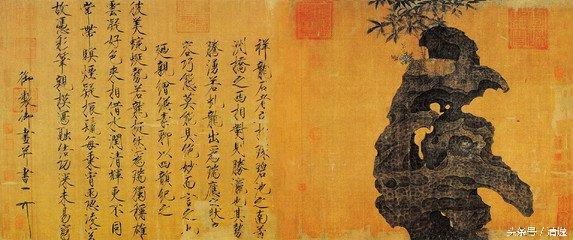 祥龍石者立於環碧池之南芳
洲橋之西相對則勝瀛也其勢
騰湧若虬龍出為瑞應之狀奇
容巧態莫能具絕妙而言之也
廼親繪縑素聊以四韻紀之
彼美蜿蜒勢若龍挺然為瑞獨稱雄
雲凝好色來相借水潤清輝更不同
常帶暝煙疑振鬣每乘宵雨恐凌空
故憑彩筆親模寫融結功深未易窮
御製御畫并書
头条号